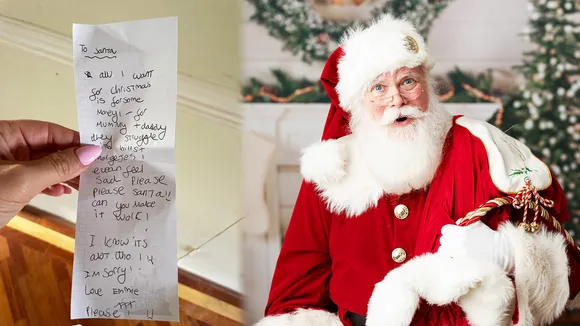 To Santa
all I want
for christmas
is for some
money! - for
mummy + daddy
they struggle
bills +
morgejes!
feel
sad Please
please santa!!
can you make
it work!
I know its
alot tho!
I'm sorry!
Love Emmie
Please!